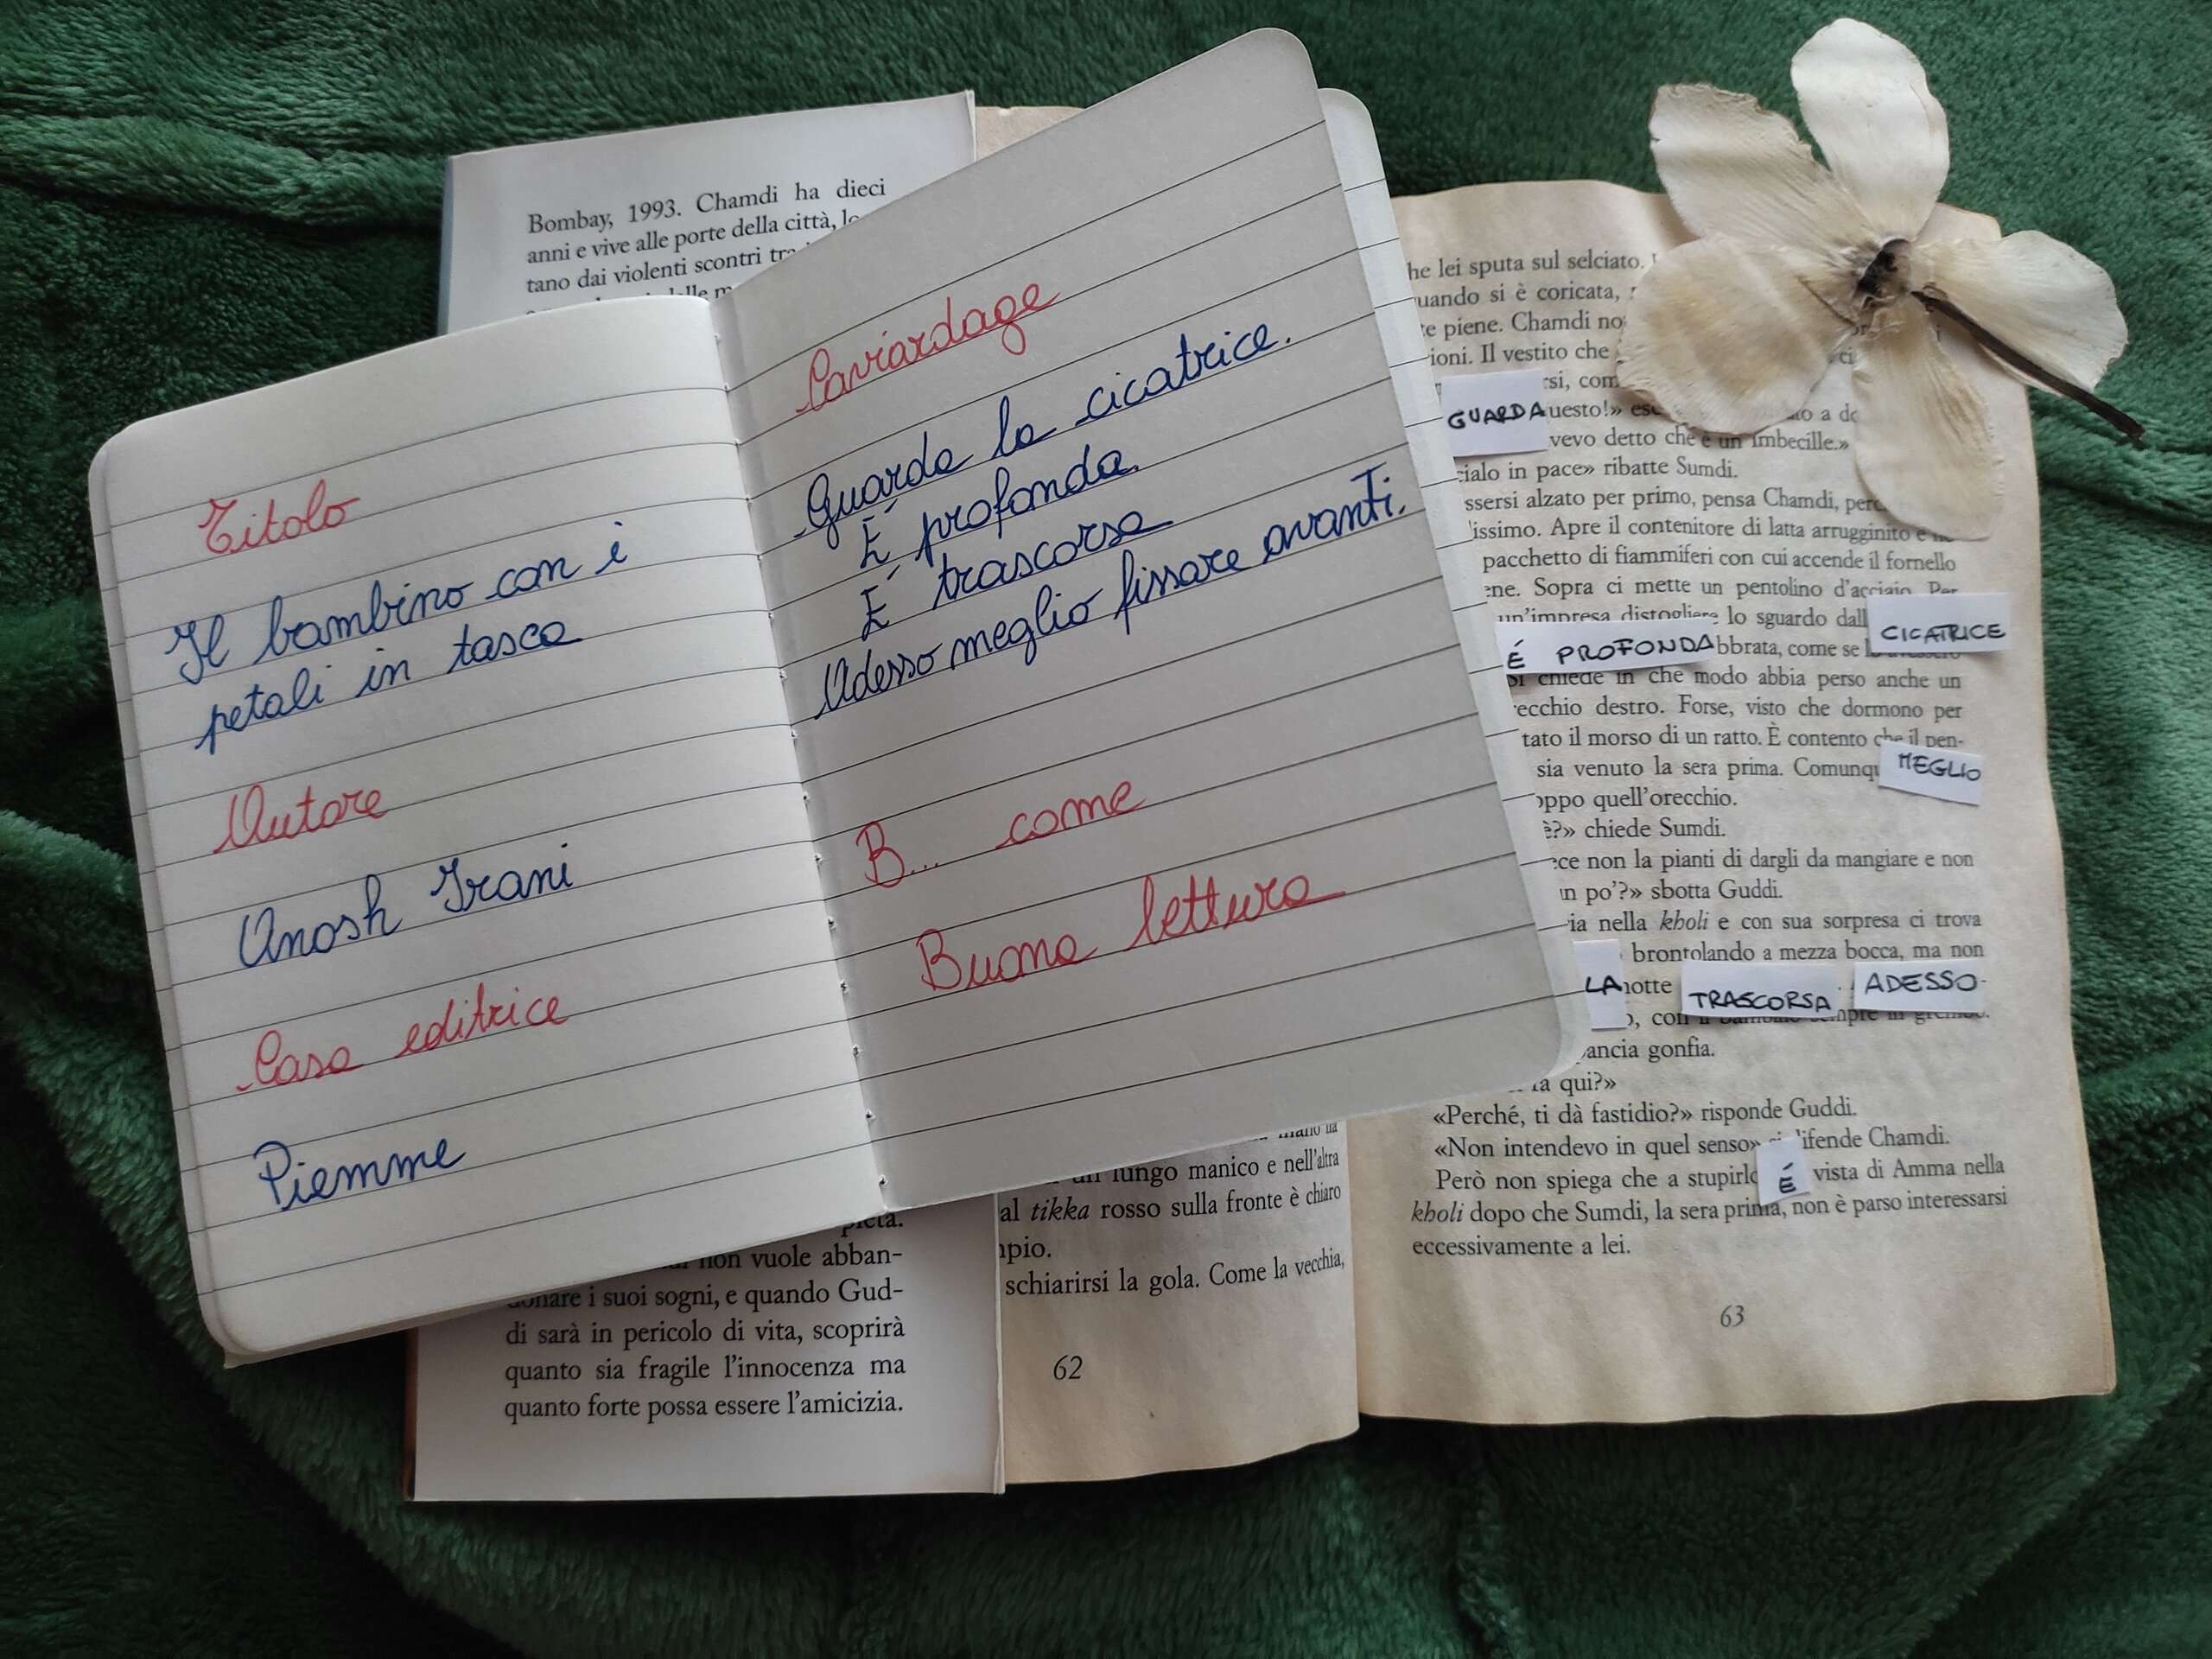 Titolo
Il bambino con i
petali in tasca
Autore
Anosh Irani
Casa editrice
Piemme
Caviardage
Guarda la cicatrice.
É profonda.
É trascorsa
Adesso meglio fissare avanti.
B... come
Buona lettura
Bombay, 1993. Chamdi ha dieci
anni e vive alle porte della città,
tano dai violenti scontri
non vuole abban-
donare i suoi sogni, e quando Gud-
di sarà in pericolo di vita, scoprirà
quanto sia fragile l'innocenza ma
quanto forte possa essere l'amicizia.
lungo manico e nell'altra
al tikka rosso sulla fronte è chiaro
schiarirsi la gola. Come la vecchia,
62
he lei sputa sul selciato.
uando si è coricata,
te piene. Chamdi
ioni. Il vestito che
rsi, com
GUARDA uesto!»
vevo detto che è un imbecille.»
cialo in pace» ribatte Sumdi.
ssersi alzato per primo, pensa Chamdi,
lissimo. Apre il contenitore di latta arrugginito e
pacchetto di fiammiferi con cui accende il fornello
ene. Sopra ci mette un pentolino d'acciaio. Per
un'impresa distogliere lo sguardo dall
CICATRICE
É PROFONDA bbrata, come se
si chiede in che modo abbia perso anche un
recchio destro. Forse, visto che dormono per
tato il morso di un ratto. È contento che il pen-
sia venuto la sera prima. Comunqu MEGLIO
oppo quell'orecchio.
è?» chiede Sumdi.
ece non la pianti di dargli da mangiare e non
un po'?» sbotta Guddi.
ia nella kholi e con sua sorpresa ci trova
brontolando a mezza bocca, ma non
LA notte TRASCORSA. ADESSO
o, con il bambino sempre in grembo.
pancia gonfia.
fa qui?»
«Perché, ti dà fastidio?» risponde Guddi.
«Non intendevo in quel senso» si difende Chamdi.
Però non spiega che a stupirlo É vista di Amma nella
kholi dopo che Sumdi, la sera prima, non è parso interessarsi
eccessivamente a lei.
63